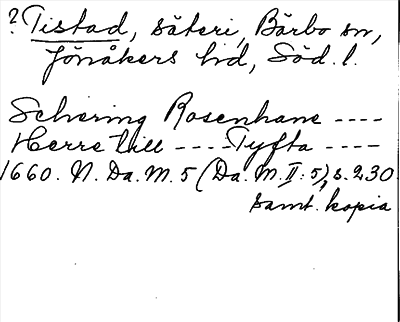 ? Tistad, säteri, Bärbo sn,
Jönåkers hd, Söd. l.
Schering Rosenhane ----
Herre till ---- Tyfta ----
1660. N. Da. M. 5 (Da. M. II: 5), s. 230.
samt. kopia